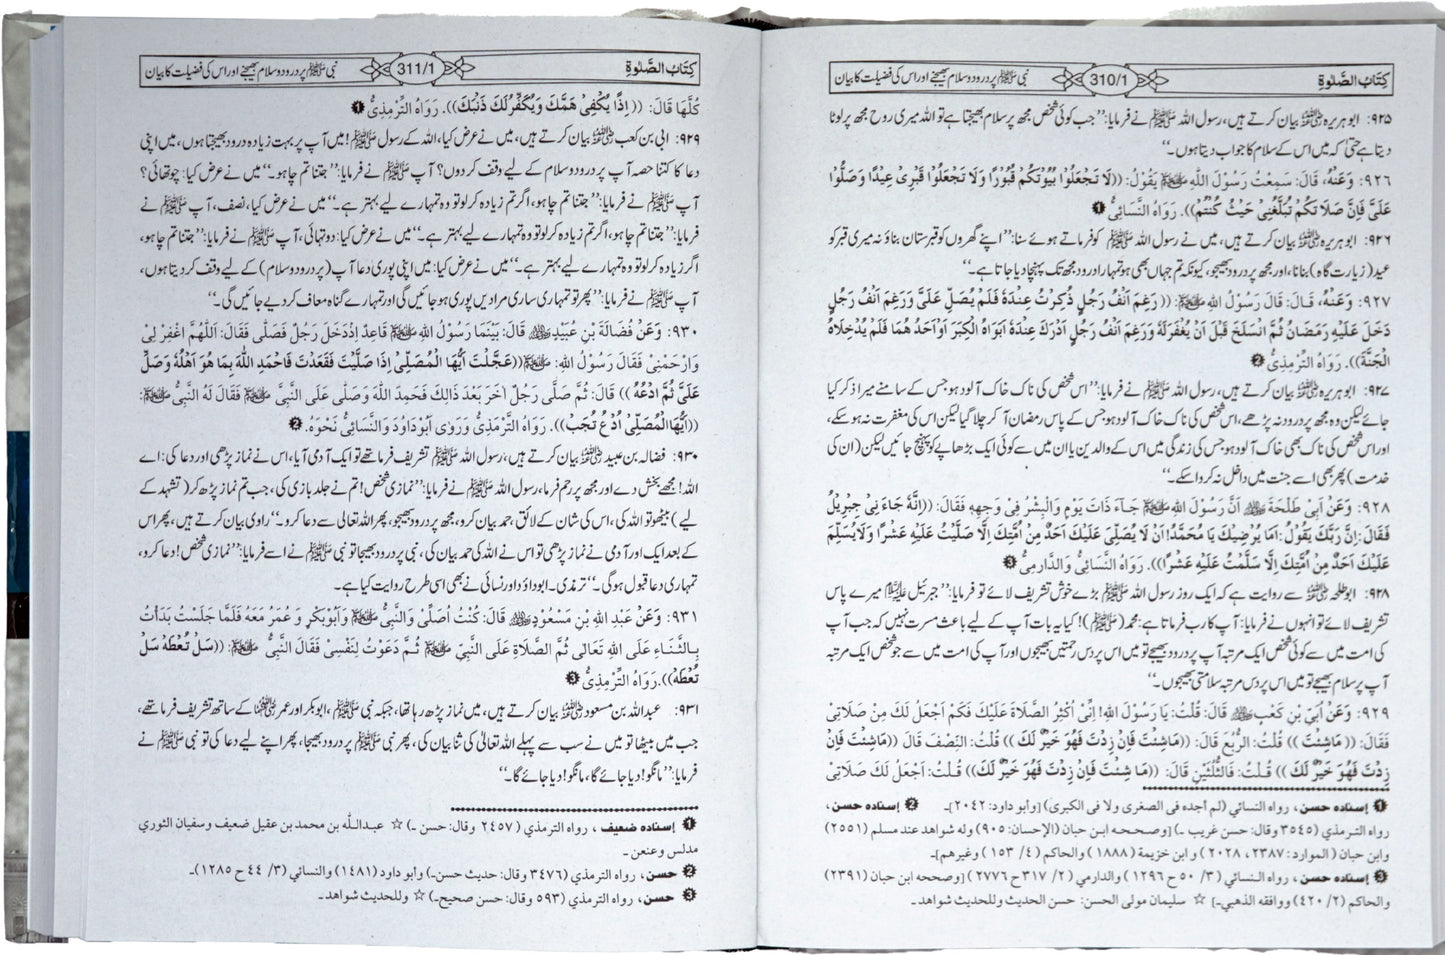 کِتَابُ الصَّلٰوۃِ
310/1
نبی ﷺ پر درود و سلام بھیجنے اور اس کی فضیلت کا بیان
۹۲۵: ابو ہریرہ ؓ بیان کرتے ہیں، رسول اللہ ﷺ نے فرمایا: ’’جب کوئی شخص مجھ پر سلام بھیجتا ہے تو اللہ میری روح مجھ پر لوٹا
دیتا ہے حتیٰ کہ میں اس کے سلام کا جواب دیتا ہوں۔‘‘
۹۲۶: وَعَنْهُ، قَالَ: سَمِعْتُ رَسُوْلَ اللهِ ﷺ یَقُوْلُ: ((لَا تَجْعَلُوْا بُیُوْتَکُمْ قُبُوْرًا وَلَا تَجْعَلُوْا قَبْرِیْ عِیْدًا وَصَلُّوْا
عَلَیَّ فَاِنَّ صَلَاتَکُمْ تُبَلَّغُنِیْ حَیْثُ کُنْتُمْ)). رَوَاهُ النَّسَائِیُّ ❶
۹۲۶: ابو ہریرہ ؓ بیان کرتے ہیں، میں نے رسول اللہ ﷺ کو فرماتے ہوئے سنا: ’’اپنے گھروں کو قبرستان بناؤ نہ میری قبر کو
عید (زیارت گاہ) بنانا، اور مجھ پر درود بھیجو، کیونکہ تم جہاں بھی ہو تمہارا درود مجھ تک پہنچا دیا جاتا ہے۔‘‘
۹۲۷: وَعَنْهُ، قَالَ: قَالَ رَسُوْلُ اللهِ ﷺ: ((رَغِمَ اَنْفُ رَجُلٍ ذُکِرْتُ عِنْدَهٗ فَلَمْ یُصَلِّ عَلَیَّ وَرَغِمَ اَنْفُ رَجُلٍ
دَخَلَ عَلَیْهِ رَمَضَانُ ثُمَّ انْسَلَخَ قَبْلَ اَنْ یُغْفَرَلَهٗ وَرَغِمَ اَنْفُ رَجُلٍ اَدْرَكَ عِنْدَهٗ اَبَوَاهُ الْکِبَرَ اَوْ اَحَدُ هُمَا فَلَمْ یُدْخِلَاهُ
الْجَنَّةَ)). رَوَاهُ التِّرْمِذِیُّ ❷
۹۲۷: ابو ہریرہ ؓ بیان کرتے ہیں، رسول اللہ ﷺ نے فرمایا: ’’اس شخص کی ناک خاک آلود ہو جس کے سامنے میرا ذکر کیا
جائے لیکن وہ مجھ پر درود نہ پڑھے، اس شخص کی ناک خاک آلود ہو جس کے پاس رمضان آ کر چلا گیا لیکن اس کی مغفرت نہ ہو سکے،
اور اس شخص کی ناک بھی خاک آلود ہو جس کی زندگی میں اس کے والدین یا ان میں سے کوئی ایک بڑھاپے کو پہنچ جائیں لیکن (ان کی
خدمت) پھر بھی اسے جنت میں داخل نہ کروا سکے۔‘‘
۹۲۸: وَعَنْ اَبِیْ طَلْحَةَ ؓ اَنَّ رَسُوْلَ اللهِ ﷺ جَآءَ ذَاتَ یَوْمٍ وَالْبِشْرُ فِیْ وَجْهِهٖ فَقَالَ: ((اِنَّهٗ جَاءَ نِیْ جِبْرِیْلُ
فَقَالَ: اِنَّ رَبَّكَ یَقُوْلُ: اَمَا یُرْضِیْكَ یَا مُحَمَّدُ! اَنْ لَا یُصَلِّیَ عَلَیْكَ اَحَدٌ مِنْ اُمَّتِكَ اِلَّا صَلَّیْتُ عَلَیْهِ عَشْرًا وَلَا یُسَلِّمُ
عَلَیْكَ اَحَدٌ مِنْ اُمَّتِكَ اِلَّا سَلَّمْتُ عَلَیْهِ عَشْرًا)). رَوَاهُ النَّسَائِیُّ وَالدَّارِمِیُّ ❸
۹۲۸: ابو طلحہ ؓ سے روایت ہے کہ ایک روز رسول اللہ ﷺ بڑے خوش تشریف لائے تو فرمایا: ’’جبرئیل ؑ میرے پاس
تشریف لائے تو انہوں نے فرمایا: آپ کا رب فرماتا ہے: محمد (ﷺ)! کیا یہ بات آپ کے لیے باعث مسرت نہیں کہ جب آپ
کی امت میں سے کوئی شخص ایک مرتبہ آپ پر درود بھیجے تو میں اس پر دس رحمتیں بھیجوں اور آپ کی امت میں سے جو شخص ایک مرتبہ
آپ پر سلام بھیجے تو میں اس پر دس مرتبہ سلامتی بھیجوں۔‘‘
۹۲۹: وَعَنْ اُبَیِّ بْنِ کَعْبٍ ؓ قَالَ: قُلْتُ: یَا رَسُوْلَ اللهِ! اِنِّیْ اُکْثِرُ الصَّلَاةَ عَلَیْكَ فَکَمْ اَجْعَلُ لَكَ مِنْ صَلَاتِیْ
فَقَالَ: ((مَاشِئْتَ)) قُلْتُ: الرُّبُعَ قَالَ: ((مَاشِئْتَ فَاِنْ زِدْتَّ فَهُوَ خَیْرٌ لَّكَ)) قُلْتُ: النِّصْفَ قَالَ ((مَاشِئْتَ فَاِنْ
زِدْتَّ فَهُوَ خَیْرٌ لَّكَ)) قُلْتُ: فَالثُّلُثَیْنِ قَالَ: ((مَا شِئْتَ فَاِنْ زِدْتَّ فَهُوَ خَیْرٌ لَّكَ)) قُلْتُ: اَجْعَلُ لَكَ صَلَاتِیْ
❶ إسناده حسن، رواه النسائي (لم أجده في الصغرى ولا في الكبرى) [وأبو داود: ۲۰۴۲]۔ ❷ إسناده حسن،
رواه الترمذي (۳۵۴۵ وقال: حسن غريب۔) [وصححه ابن حبان (الإحسان: ۹۰۵) وله شواهد عند مسلم (۲۵۵۱)
وابن حبان (الموارد: ۲۳۸۷، ۲۰۲۸) وابن خزيمة (۱۸۸۸) والحاكم (۴/ ۱۵۳) وغيرهم]۔
❸ إسناده حسن، رواه النسائي (۳/ ۵۰ ح ۱۲۹۶) والدارمي (۲/ ۳۱۷ ح ۲۷۷۶) [وصححه ابن حبان (۲۳۹۱)
والحاكم (۲/ ۴۲۰) ووافقه الذهبي۔] ☆ سليمان مولى الحسن: حسن الحديث وللحديث شواهد۔
کِتَابُ الصَّلٰوۃِ
311/1
نبی ﷺ پر درود و سلام بھیجنے اور اس کی فضیلت کا بیان
کُلَّهَا قَالَ: ((اِذًا یُکْفِیْ هَمَّكَ وَیُکَفَّرُ لَكَ ذَنْبُكَ)). رَوَاهُ التِّرْمِذِیُّ ❶
۹۲۹: ابی بن کعب ؓ بیان کرتے ہیں، میں نے عرض کیا، اللہ کے رسول ﷺ! میں آپ پر بہت زیادہ درود بھیجتا ہوں، میں اپنی
دعا کا کتنا حصہ آپ پر درود و سلام کے لیے وقف کر دوں؟ آپ ﷺ نے فرمایا: ’’جتنا تم چاہو۔‘‘ میں نے عرض کیا: چوتھائی؟
آپ ﷺ نے فرمایا: ’’جتنا تم چاہو، اگر تم زیادہ کر لو تو وہ تمہارے لیے بہتر ہے۔‘‘ میں نے عرض کیا، نصف، آپ ﷺ نے
فرمایا: ’’جتنا تم چاہو، اگر تم زیادہ کر لو تو وہ تمہارے لیے بہتر ہے۔‘‘ میں نے عرض کیا: دو تہائی، آپ ﷺ نے فرمایا: ’’جتنا تم چاہو،
اگر زیادہ کر لو تو وہ تمہارے لیے بہتر ہے۔‘‘ میں نے عرض کیا: میں اپنی پوری دعا آپ (پر درود و سلام) کے لیے وقف کر دیتا ہوں،
آپ ﷺ نے فرمایا: ’’پھر تو تمہاری ساری مرادیں پوری ہو جائیں گی اور تمہارے گناہ معاف کر دیے جائیں گی۔‘‘
۹۳۰: وَعَنْ فَضَالَةَ بْنِ عُبَیْدٍ ؓ قَالَ: بَیْنَمَا رَسُوْلُ اللهِ ﷺ قَاعِدٌ اِذْدَخَلَ رَجُلٌ فَصَلّٰی فَقَالَ: اَللّٰهُمَّ اغْفِرْ لِیْ
وَارْحَمْنِیْ فَقَالَ رَسُوْلُ اللهِ: ﷺ ((عَجَّلْتَ اَیُّهَا الْمُصَلِّیْ اِذَا صَلَّیْتَ فَقَعَدْتَ فَاحْمَدِ اللهَ بِمَا هُوَ اَهْلُهٗ وَصَلِّ
عَلَیَّ ثُمَّ ادْعُهُ)) قَالَ: ثُمَّ صَلّٰی رَجُلٌ اٰخَرُ بَعْدَ ذَالِكَ فَحَمِدَ اللهَ وَصَلّٰی عَلَی النَّبِیِّ ﷺ فَقَالَ لَهُ النَّبِیُّ ﷺ:
((اَیُّهَا الْمُصَلِّیْ اُدْعُ تُجَبْ)). رَوَاهُ التِّرْمِذِیُّ وَرَوٰی اَبُوْدَاوٗدَ وَالنَّسَائِیُّ نَحْوَهٗ. ❷
۹۳۰: فضالہ بن عبید ؓ بیان کرتے ہیں، رسول اللہ ﷺ تشریف فرما تھے تو ایک آدمی آیا، اس نے نماز پڑھی اور دعا کی: اے
اللہ! مجھے بخش دے اور مجھ پر رحم فرما، رسول اللہ ﷺ نے فرمایا: ’’نمازی شخص! تم نے جلد بازی کی، جب تم نماز پڑھ کر (تشہد کے
لیے) بیٹھو تو اللہ کی، اس کی شان کے لائق، حمد بیان کرو، مجھ پر درود بھیجو، پھر اللہ تعالیٰ سے دعا کرو۔‘‘ راوی بیان کرتے ہیں، پھر اس
کے بعد ایک اور آدمی نے نماز پڑھی تو اس نے اللہ کی حمد بیان کی، نبی پر درود بھیجا تو نبی ﷺ نے اسے فرمایا: ’’نمازی شخص! دعا کرو،
تمہاری دعا قبول ہوگی۔‘‘ ترمذی۔ ابو داؤد اور نسائی نے بھی اسی طرح روایت کیا ہے۔
۹۳۱: وَعَنْ عَبْدِ اللهِ بْنِ مَسْعُوْدٍ ؓ قَالَ: کُنْتُ اُصَلِّیْ وَالنَّبِیُّ ﷺ وَاَبُوْبَکْرٍ وَ عُمَرُ مَعَهٗ فَلَمَّا جَلَسْتُ بَدَأْتُ
بِالثَّنَاءِ عَلَی اللهِ تَعَالٰی ثُمَّ الصَّلَاةِ عَلَی النَّبِیِّ ﷺ ثُمَّ دَعَوْتُ لِنَفْسِیْ فَقَالَ النَّبِیُّ ﷺ: ((سَلْ تُعْطَهْ سَلْ
تُعْطَهْ)). رَوَاهُ التِّرْمِذِیُّ ❸
۹۳۱: عبداللہ بن مسعود ؓ بیان کرتے ہیں، میں نماز پڑھ رہا تھا، جبکہ نبی ﷺ، ابو بکر اور عمر ؓ کے ساتھ تشریف فرما تھے،
جب میں بیٹھا تو میں نے سب سے پہلے اللہ تعالیٰ کی ثنا بیان کی، پھر نبی ﷺ پر درود بھیجا، پھر اپنے لیے دعا کی تو نبی ﷺ نے
فرمایا: ’’مانگو! دیا جائے گا، مانگو! دیا جائے گا۔‘‘
❶ إسناده ضعيف، رواه الترمذي (۲۴۵۷ وقال: حسن۔) ☆ عبدالله بن محمد بن عقيل ضعيف وسفيان الثوري
مدلس وعنعن۔
❷ حسن، رواه الترمذي (۳۴۷۶ وقال: حديث حسن۔) وأبو داود (۱۴۸۱) والنسائي (۳/ ۴۴ ح ۱۲۸۵)۔
❸ حسن، رواه الترمذي (۵۹۳ وقال: حسن صحيح۔) ☆ وللحديث شواهد۔